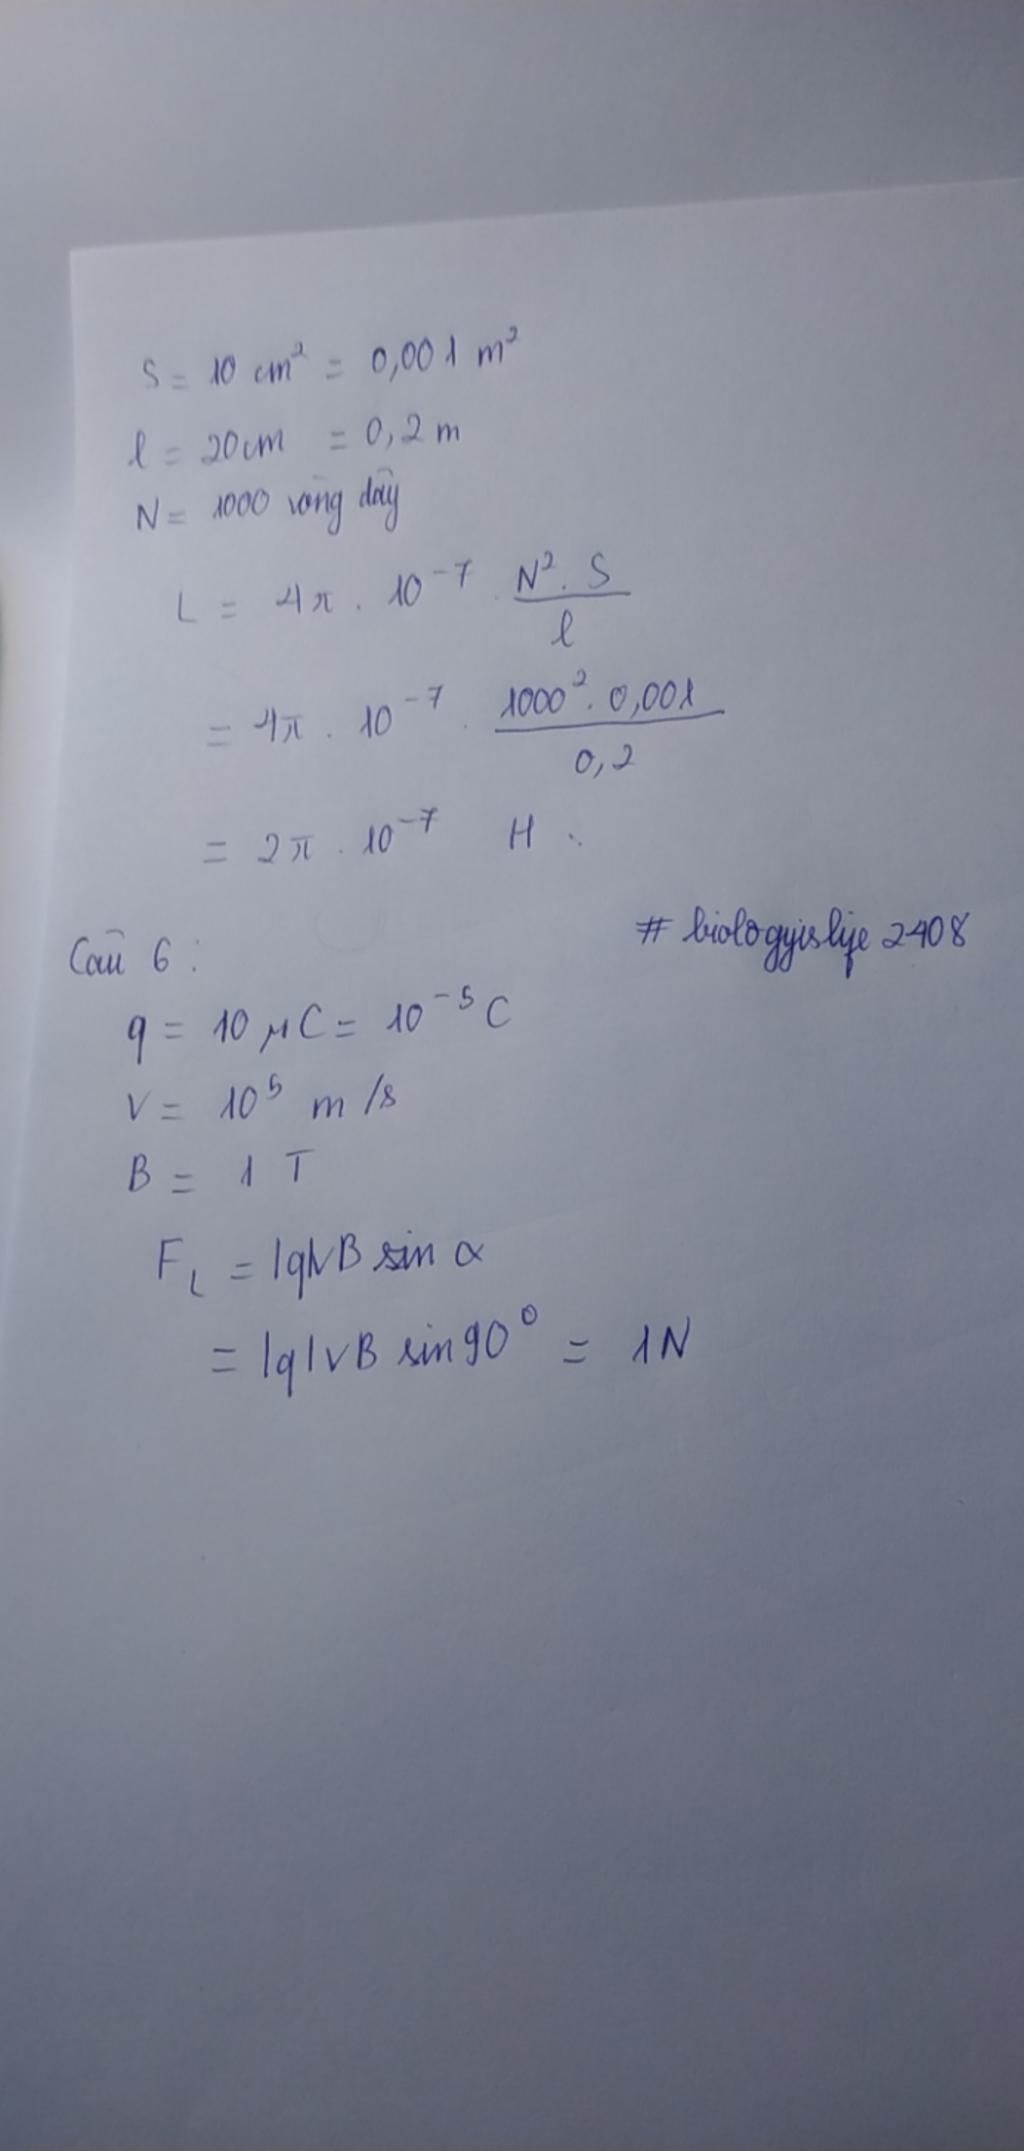 S = 10 cm² = 0,001 m²
l = 20cm = 0,2 m
N = 1000 vòng dây
L = 4π . 10⁻⁷ . N². S / l
= 4π . 10⁻⁷ . 1000². 0,001 / 0,2
= 2π . 10⁻⁷ H .
Câu 6 :
# biologyislife 2408
q = 10 μC = 10⁻⁵ C
V = 10⁵ m/s
B = 1 T
F_L = |q|vB sin α
= |q|vB sin 90° = 1N